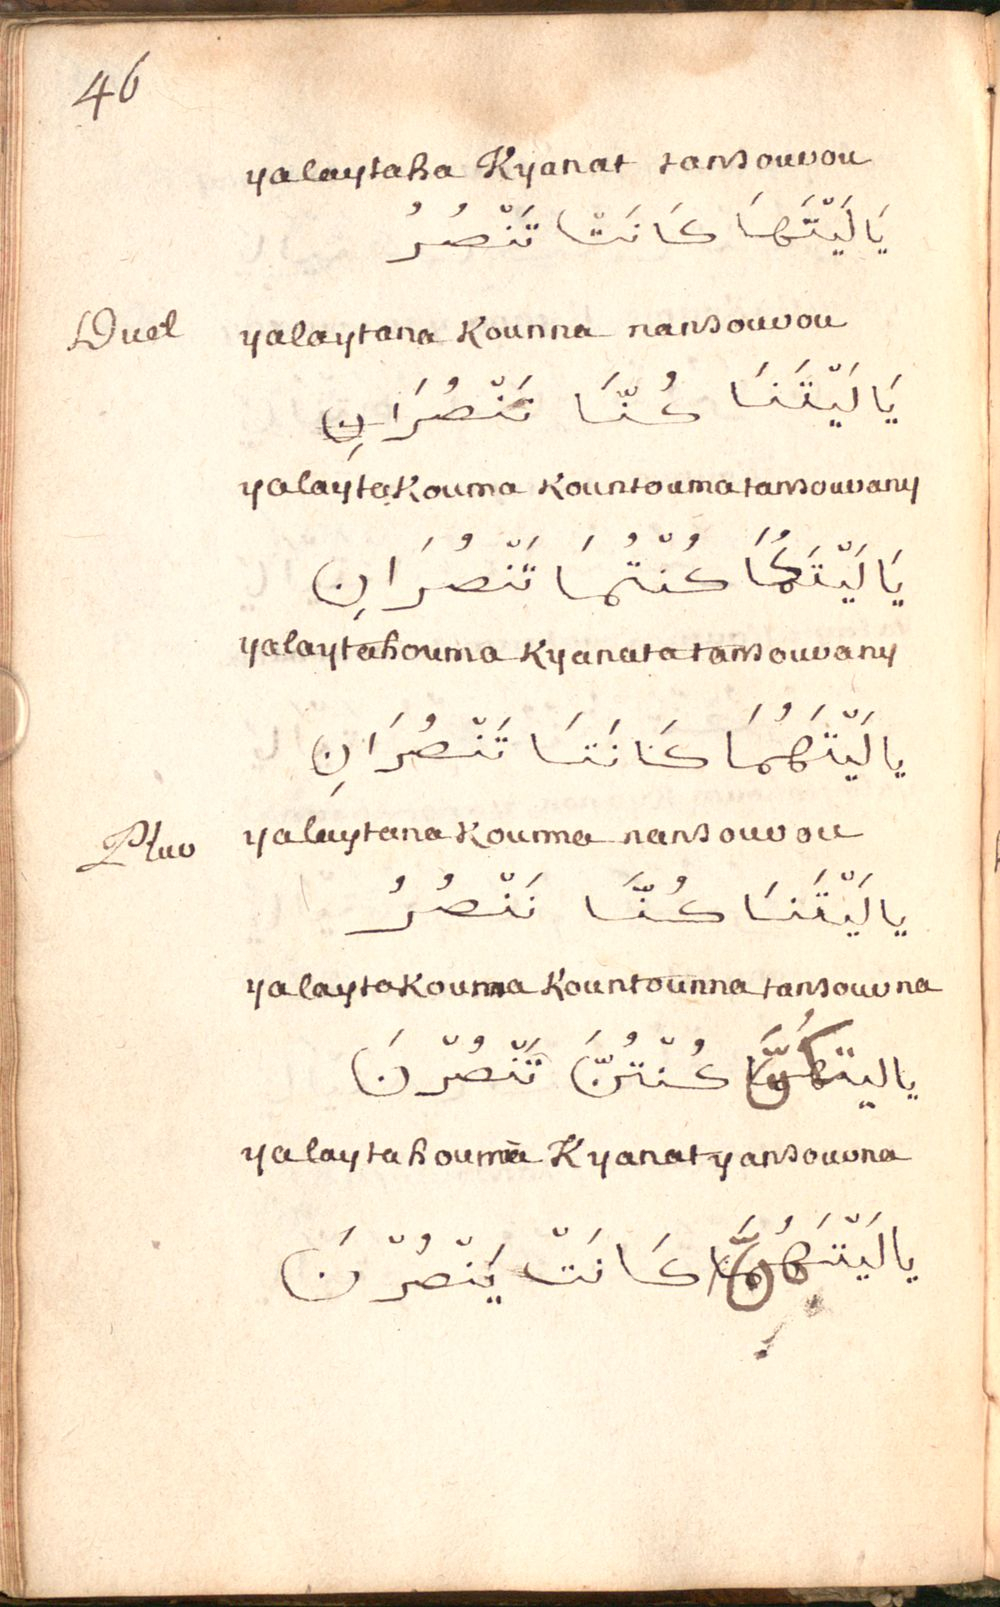 46
yalaytaha Kyanat tansourou
يَا لَيْتَهَا كَانَتْ تَنْصُرُ
Duel yalaytana Kounna nansourou
يَا لَيْتَنَا كُنَّا تَنْصُرَانِ
yalaytaKouma Kountouma tansourany
يَا لَيْتَكُمَا كُنْتُمَا تَنْصُرَانِ
yalaytahouma Kyanata tansourany
يا لَيْتَهُمَا كَانَتَا تَنْصُرَانِ
Plur yalaytana Kounna nansourou
يا لَيْتَنَا كُنَّا نَنْصُرُ
yalaytaKouma Kountounna tansourna
يا ليتكُنَّ كُنْتُنَّ تَنْصُرْنَ
yalaytahouma Kyanat yansourna
يا لَيْتَهُنَّ كَانَتْ يَنْصُرْنَ